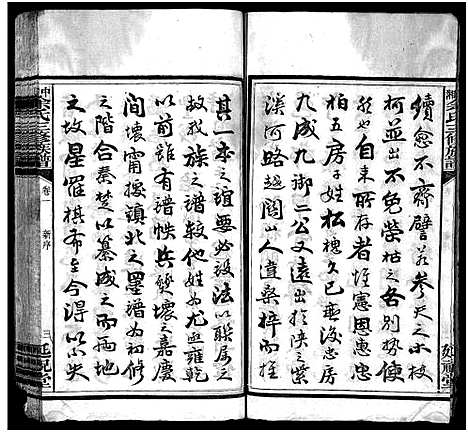 續愈不齊譬若參天之木枝
柯並出不免榮枯之各別勢使
然也自柬所存者惟憲恩惠忠
柏五房子姓松槐久已無後忠房
九成九御二公又遠出於陝之紫
溪河略越關山人遠桑梓而推
其一本之誼要必設法以聯屬之
故我族之譜較他姓為尤亟雍乾
以前雖有譜帙兵燹壞之嘉慶
間壞甯擾鎮北之墨譜為初修
之階合秦楚以纂成之而兩地
之坟星羅棋布至今得以不失
余氏三修族譜
卷一
新序
三